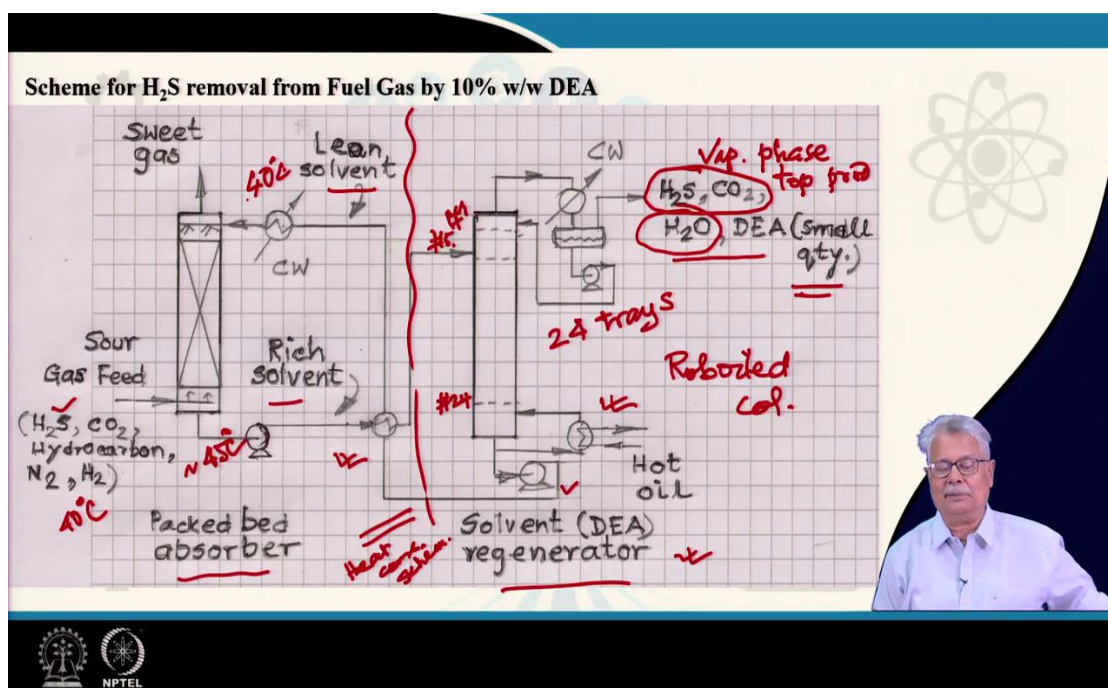 Scheme for H₂S removal from Fuel Gas by 10% w/w DEA
Sweet
gas
Lean
solvent
40°C
CW
CW
Vap. phase
top prod
H₂S, CO₂,
H₂O, DEA (small
qty.)
#1
#5
24 trays
Sour
Gas Feed
(H₂S, CO₂,
Hydrocarbon,
N₂, H₂)
40°C
Rich
solvent
~45°C
#24
Reboiled
col.
Hot
oil
Packed bed
absorber
Heat
scheme
Solvent (DEA)
regenerator
NPTEL